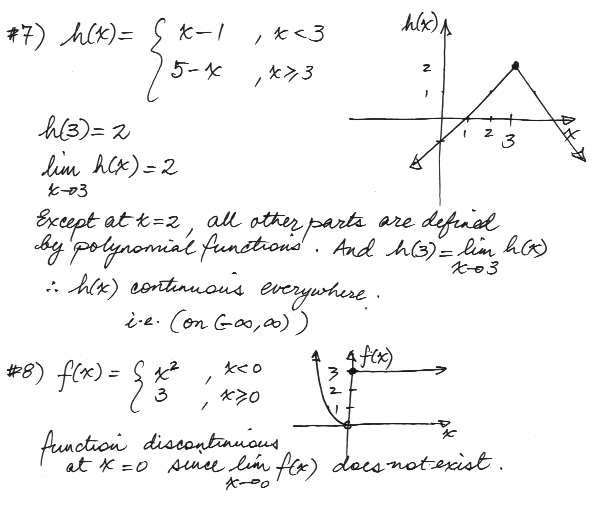 #7) h(x) = { x-1 , x<3
5-x , x≥3
h(x)
2
1
1 2 3
x
h(3) = 2
lim h(x) = 2
x→3
Except at x=2, all other parts are defined
by polynomial functions. And h(3) = lim h(x)
x→3
∴ h(x) continuous everywhere.
i.e. (on (-∞,∞))
#8) f(x) = { x² , x<0
3 , x≥0
f(x)
3
2
1
x
function discontinuous
at x=0 since lim f(x) does not exist.
x→0